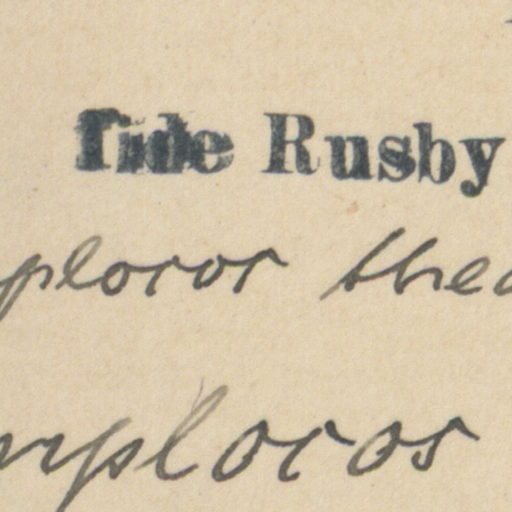 fide Rusby
plocos thea
mplocos